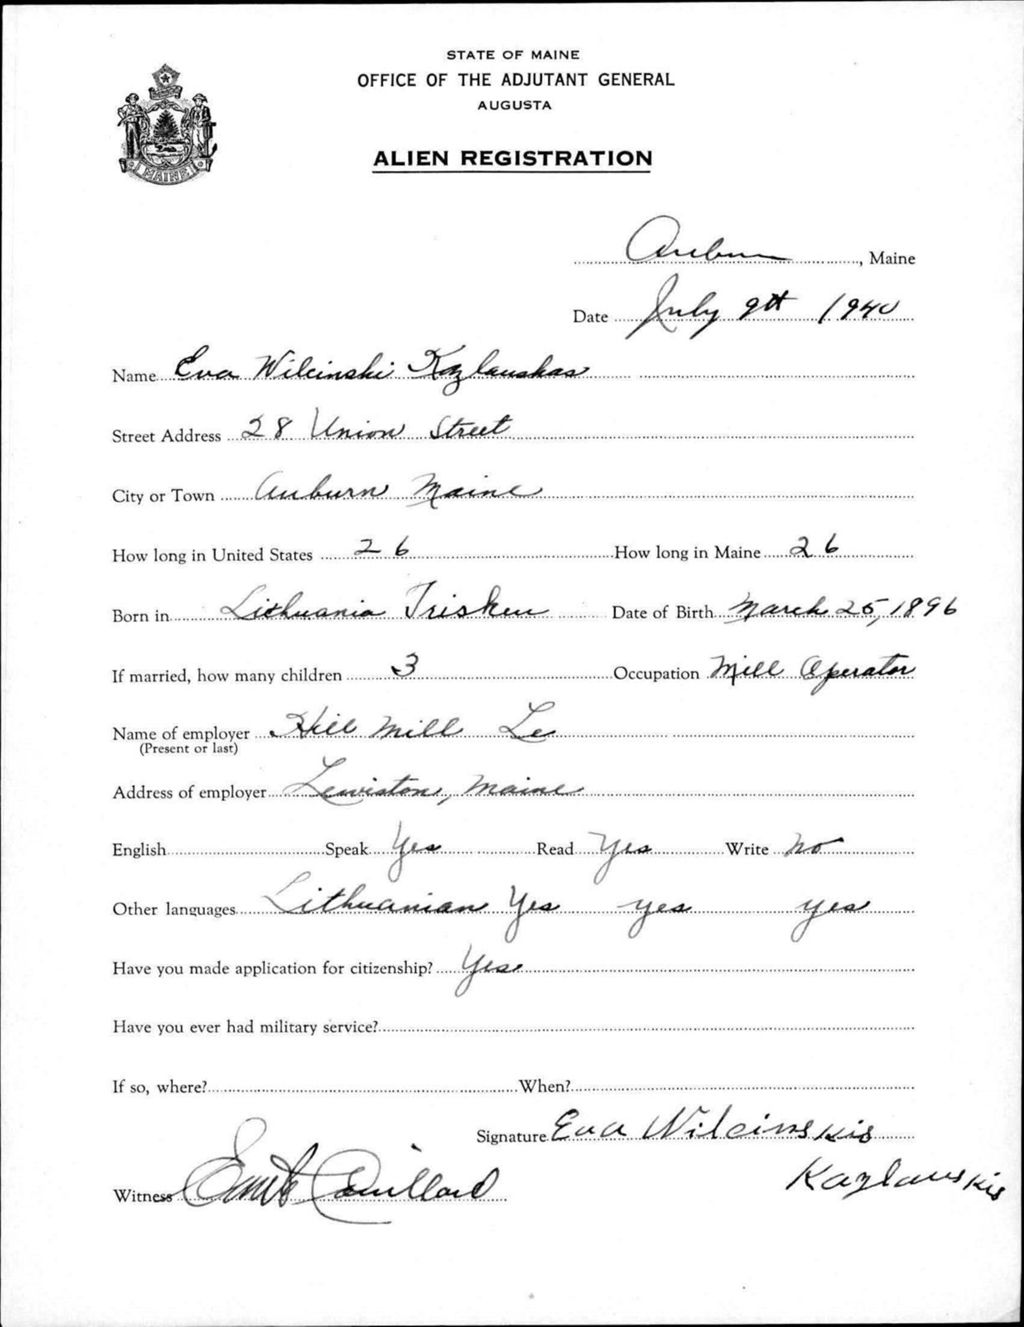 STATE OF MAINE
OFFICE OF THE ADJUTANT GENERAL
AUGUSTA
ALIEN REGISTRATION
MAINE
Auburn, Maine
Date July 9th 1940
Name Eva Wilcinski Kazlauskas
Street Address 28 Union Street
City or Town Auburn Maine
How long in United States 26 How long in Maine 26
Born in Lithuania Date of Birth March 25, 1896
If married, how many children 3 Occupation Mill Operator
Name of employer Hill Mill
(Present or last)
Address of employer Lewiston, Maine
English Speak Yes Read Yes Write no
Other languages Lithuanian Yes yes yes
Have you made application for citizenship? Yes
Have you ever had military service?
If so, where? When?
Signature Eva Wilcinskis
Kazlauskis
Witness